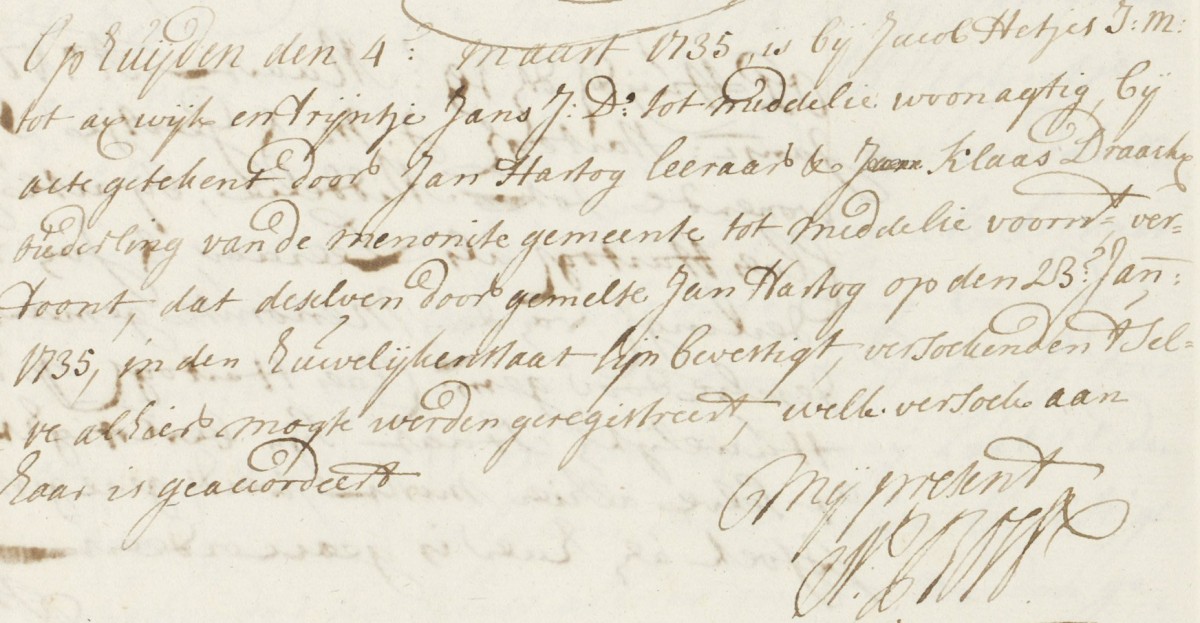 Op huijden den 4e. maart 1735, is bij Jacob Hetjes J: M:
tot axwijk en Trijntje Jans J: D: tot middelie woonagtig, bij
acte getekent door Jan Hartog leeraar & Klaas Draack
ouderling van de menonite gemeente tot middelie voornt, ver=
toont, dat deselven door gemelte Jan Hartog op den 23e. Jan:
1735, in den huwelijken staat sijn bevestigt, versoekende 't sel=
ve alhier mogte werden geregistreert, welk versoek aan
haar is geaccordeert
Mij present